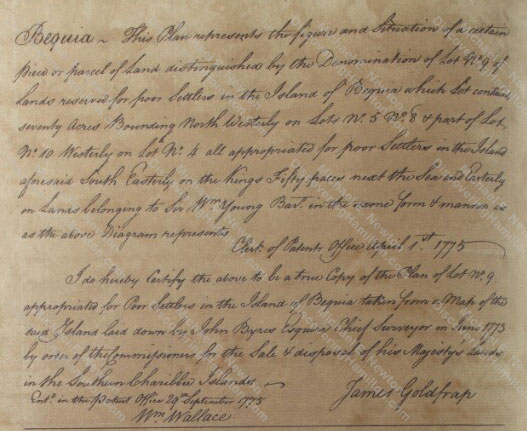 Bequia ~ This Plan represents the figure and Situation of a certain
piece or parcel of Land distinguished by the Denomination of Lot No. 9 of
Lands reserved for poor Settlers in the Island of Bequia which Lot contains
seventy Acres Bounding North Westerly on Lots No. 5 No. 8 & part of Lot
No. 10 Westerly on Lot No. 4 all appropriated for poor Settlers in the Island
aforesaid South Easterly on the Kings Fifty paces next the Sea and Easterly
on Lands belonging to Sir Wm Young Bart. in the same form & manner is
as the above Diagram represents
Clerk of Patents Office April 1st 1775
I do hereby Certify the above to be a true Copy of the Plan of Lot No. 9
appropriated for Poor Settlers in the Island of Bequia taken from a Map of the
said Island laid down by John Byres Esquire Chief Surveyor in June 1773
by order of the Commissioners for the Sale & disposal of his Majestys Lands
in the Southern Charibbee Islands ~
James Goldfrap
Entd. in the Patent Office 29th September 1775
Wm. Wallace